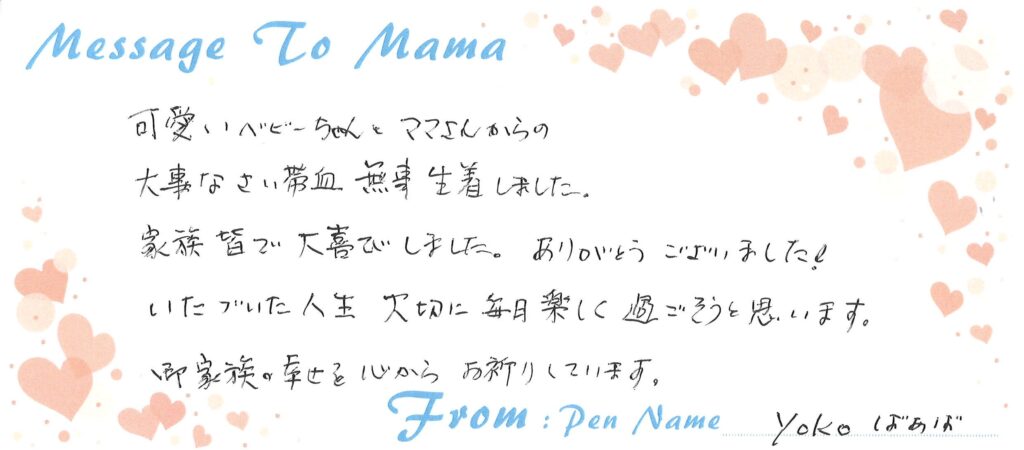 Message To Mama
可愛いベビーちゃんとママさんからの
大事なさい帯血 無事生着しました。
家族皆で大喜びしました。ありがとうございました!
いたづいた人生 大切に毎日楽しく過ごそうと思います。
御家族の幸せを心からお祈りしています。
From : Pen Name Yoko ばあば